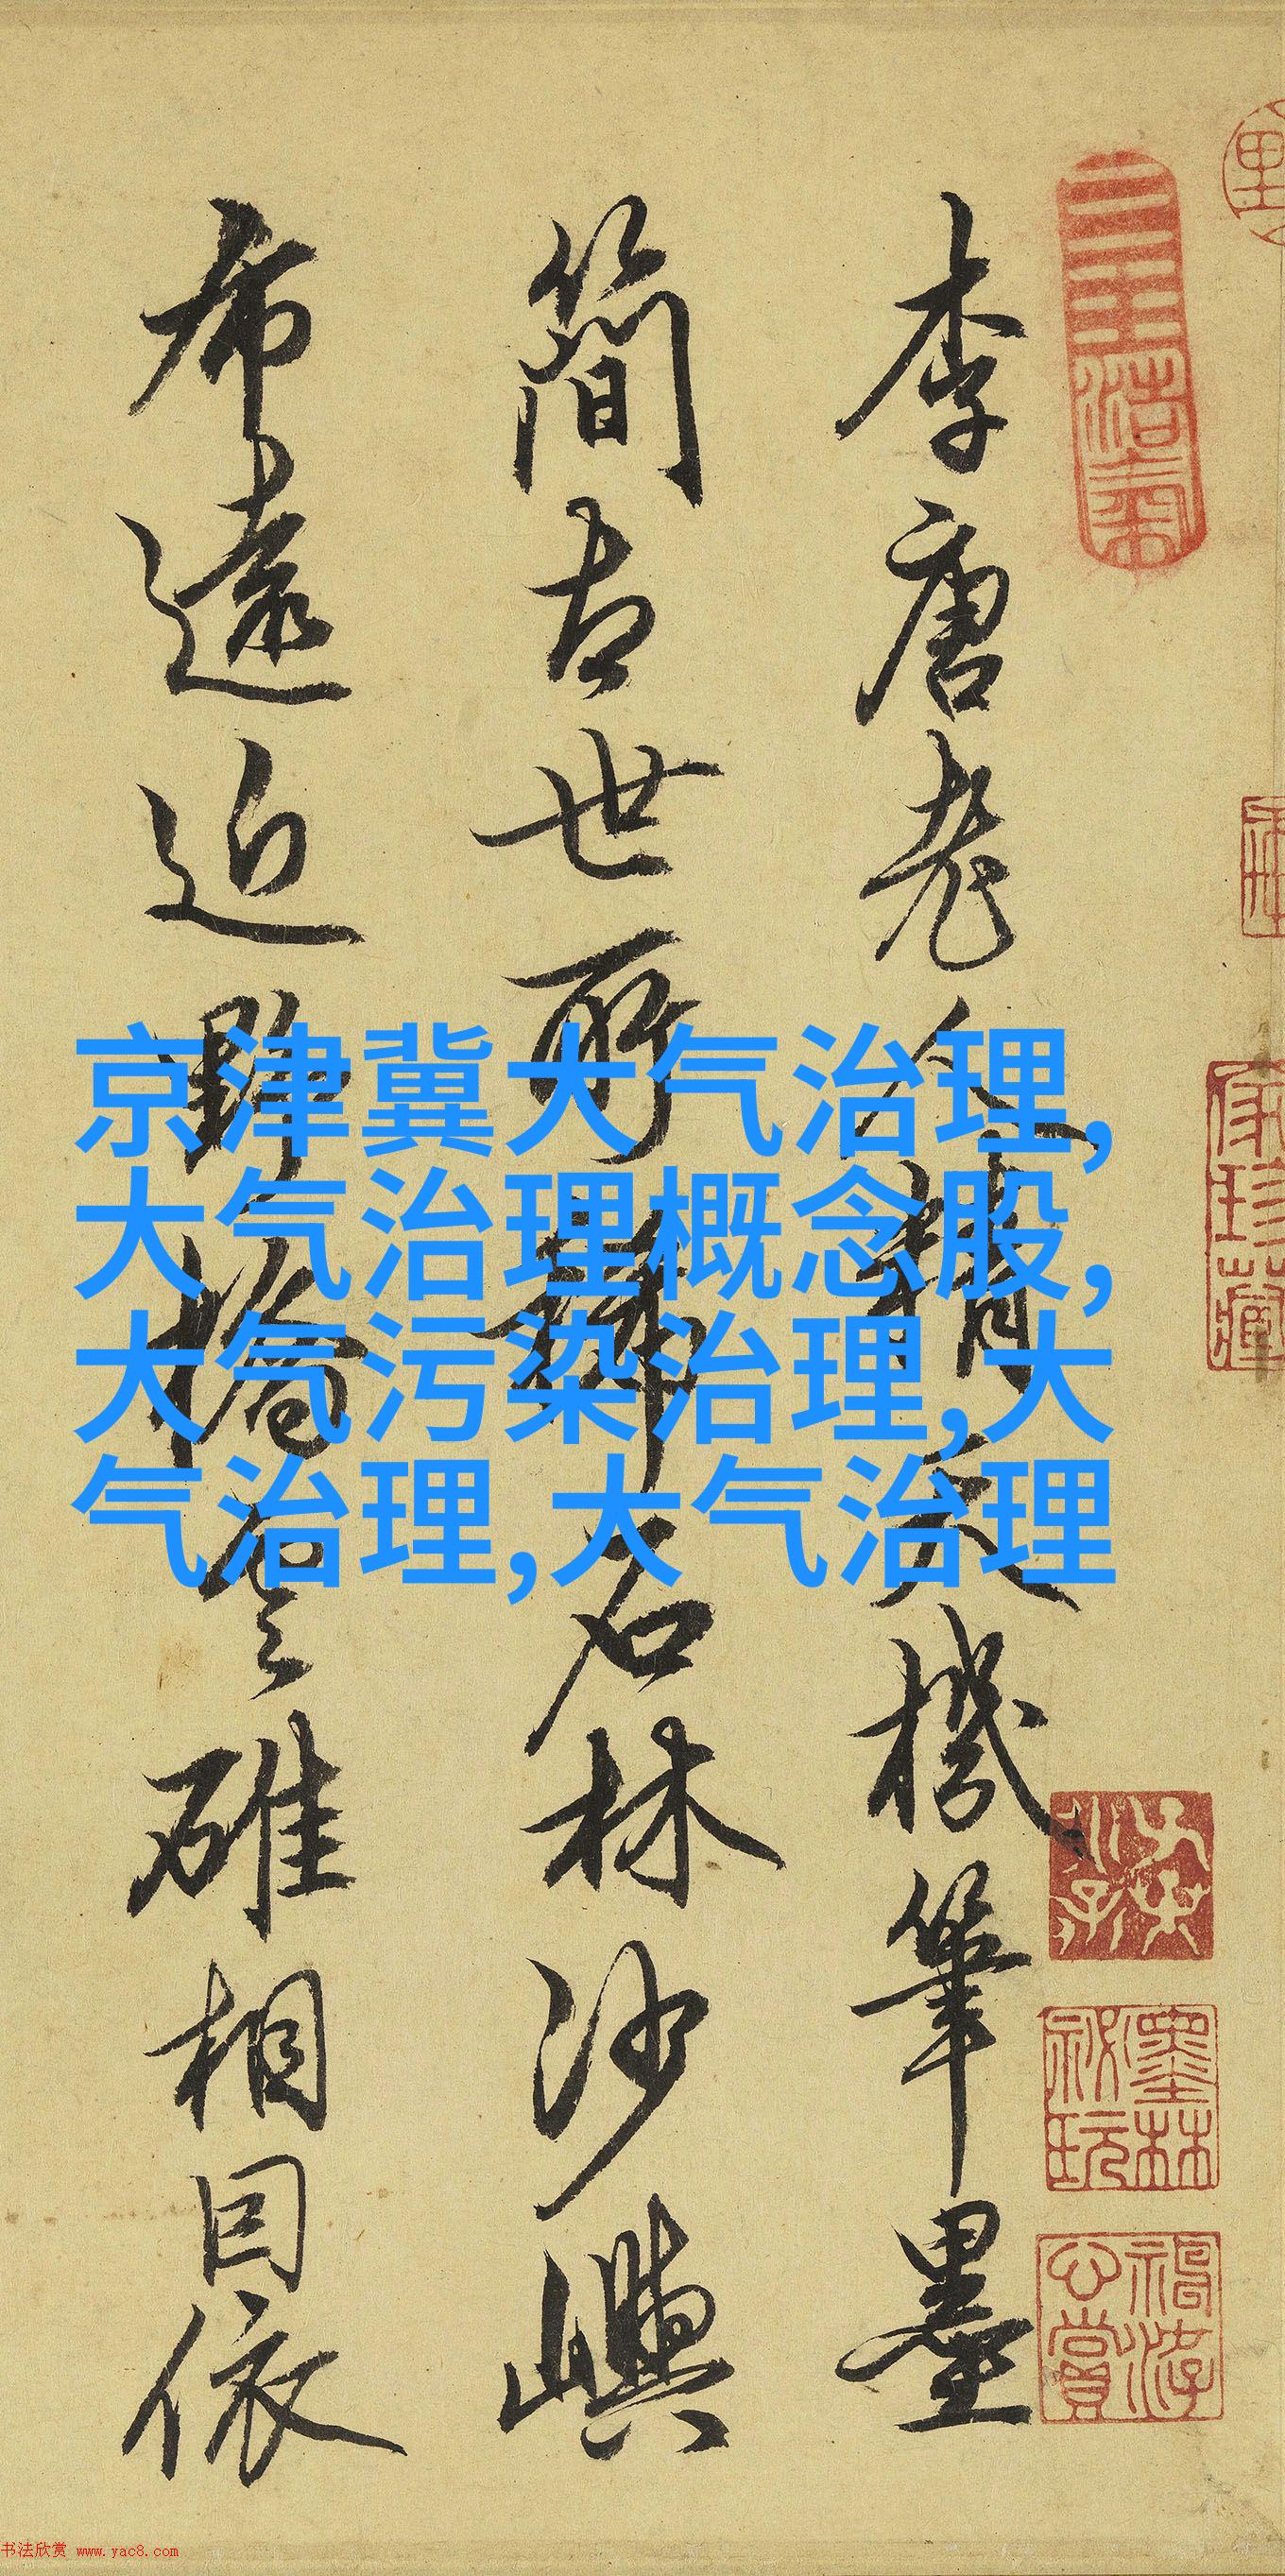 李唐老人精天機筆墨
簡古世所稀石林沙嶼
布遠近野橋雲碓相因依
京津冀大气治理,
大气治理概念股,
大气污染治理,大
气治理,大气治理
墨林祕玩
书法欣赏 www.yac8.com